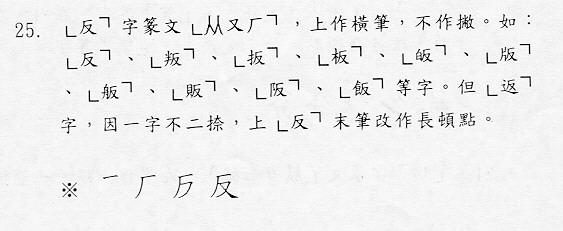 25. 「反」字篆文「从又厂」,上作橫筆,不作撇。如:
「反」、「叛」、「扳」、「板」、「皈」、「版」
、「舨」、「販」、「阪」、「飯」等字。但「返」
字,因一字不二捺,上「反」末筆改作長頓點。
※ ㇐ 厂 𠂆 反